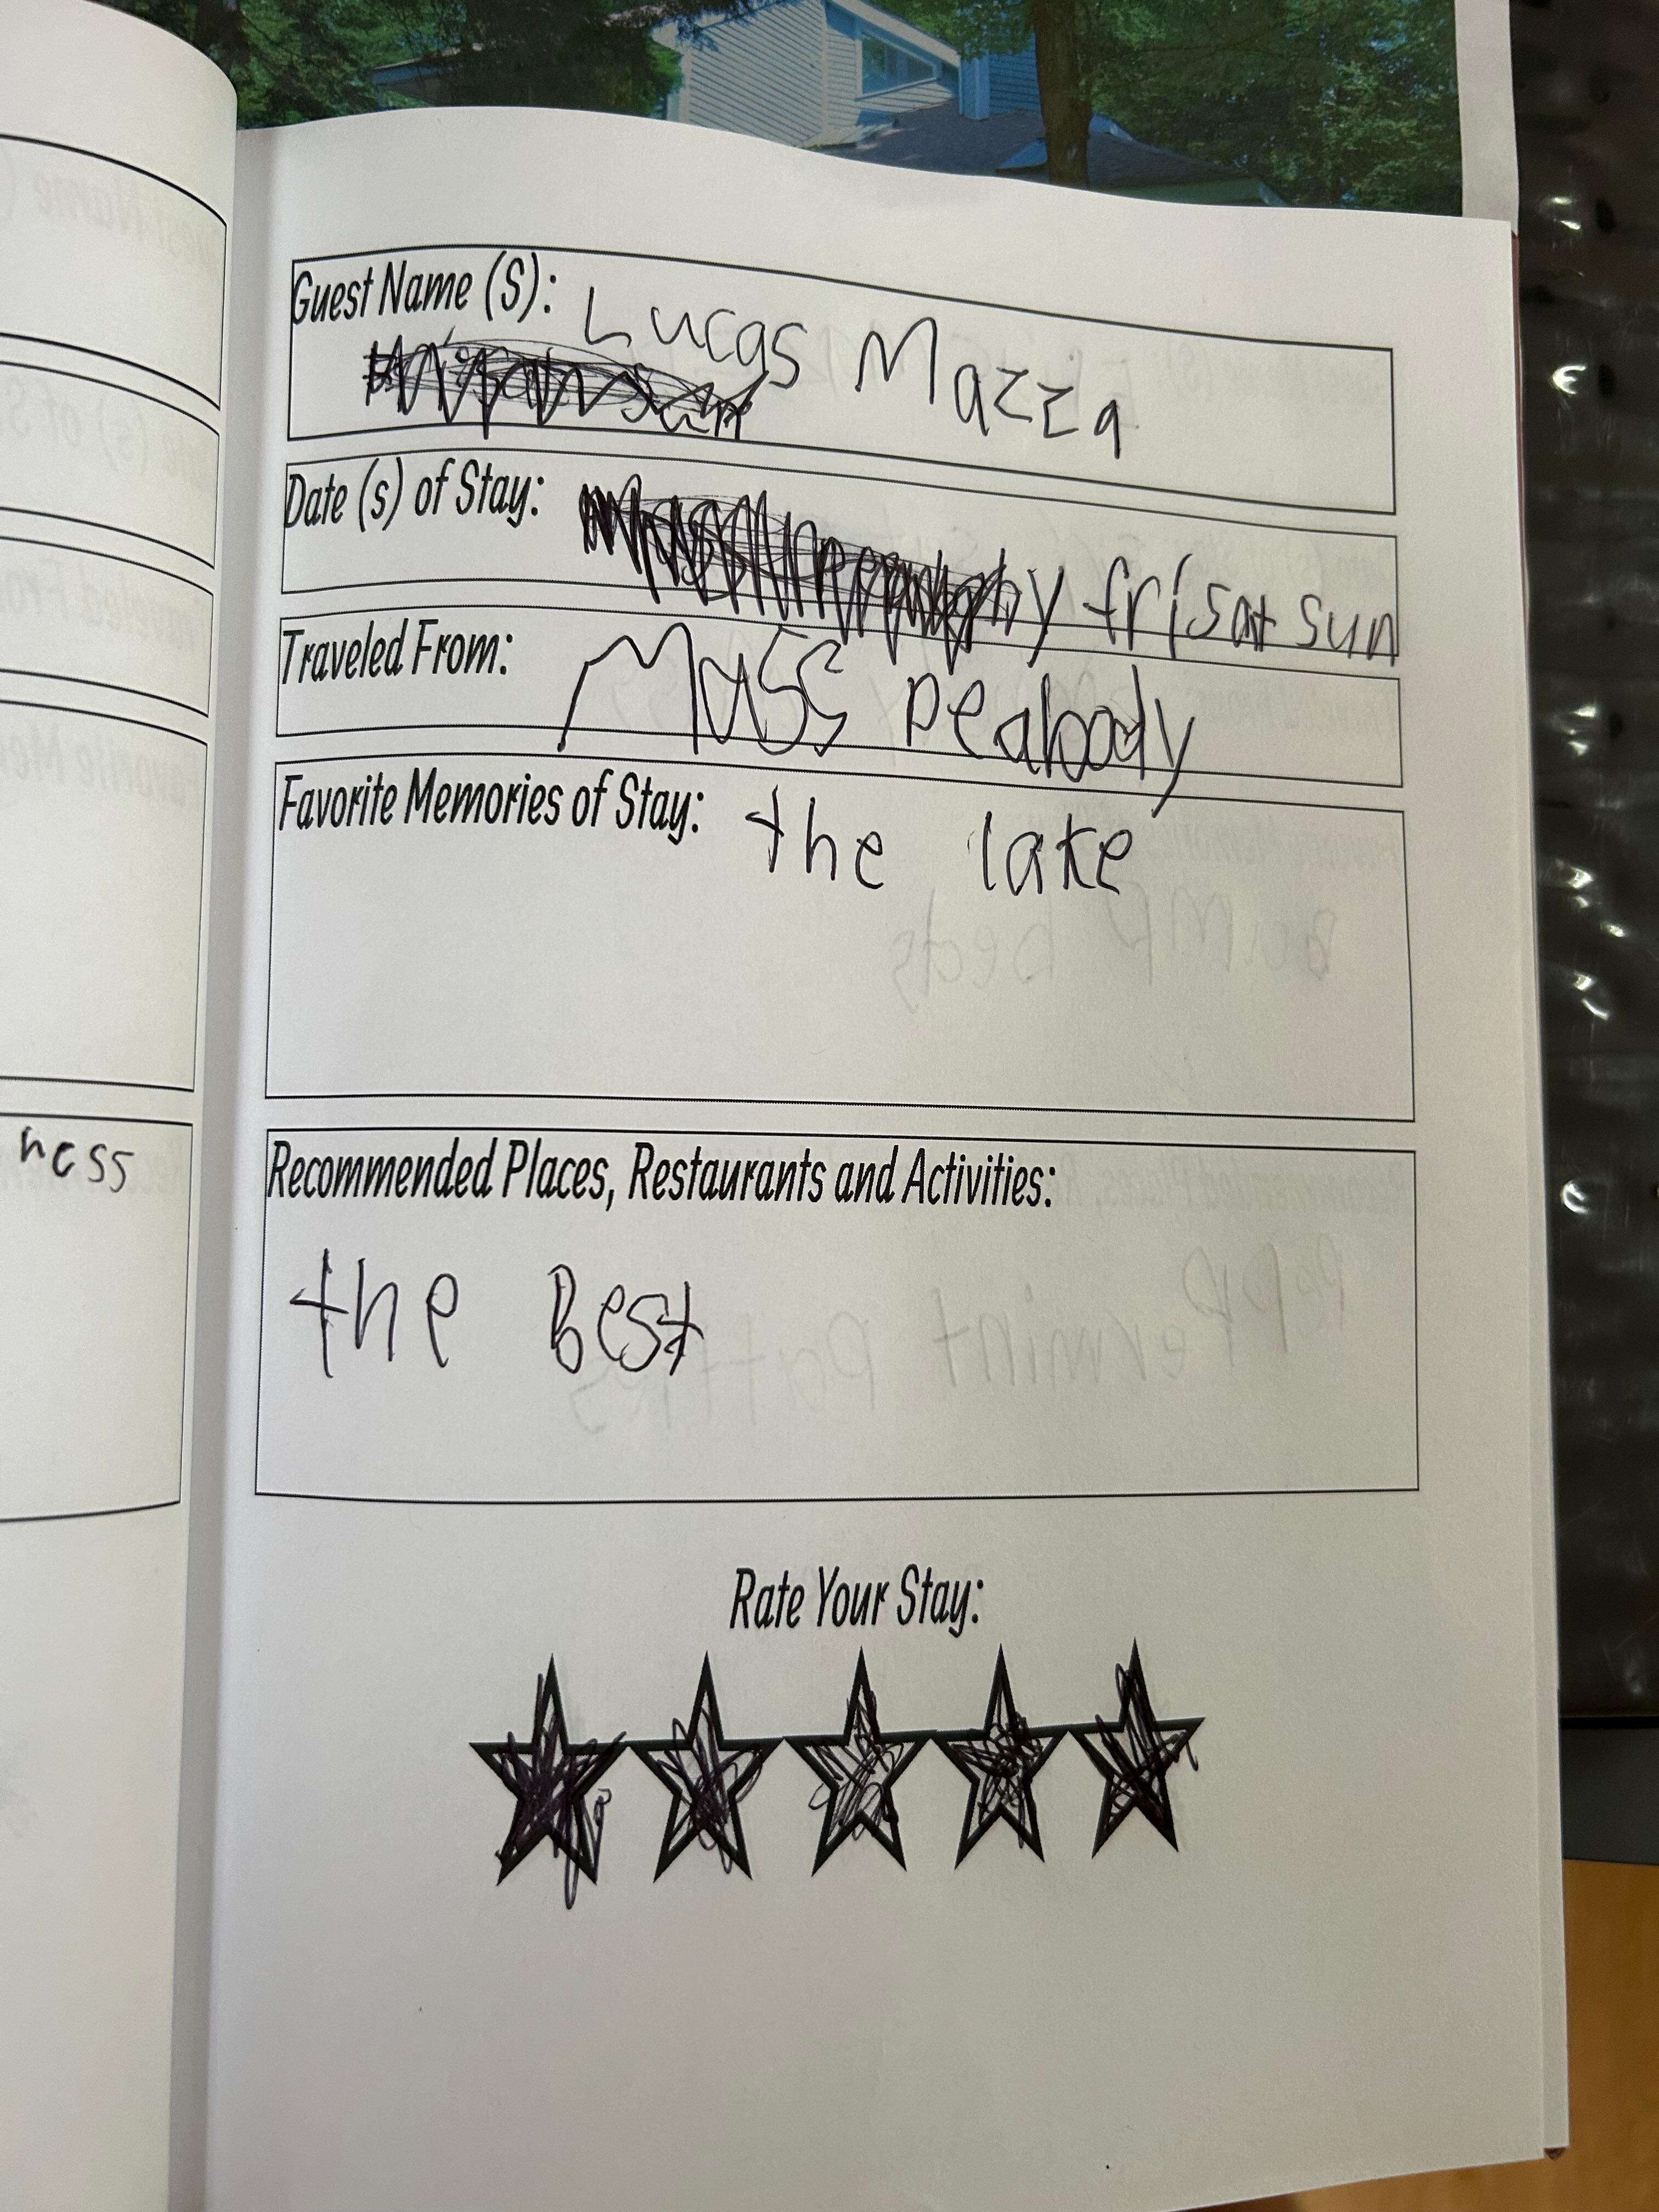 Guest Name (S): Lucas Mazza
Date (s) of Stay: fri sat sun
Traveled From: Mass Peabody
Favorite Memories of Stay: the lake
ness
Recommended Places, Restaurants and Activities:
the Best
Rate Your Stay: